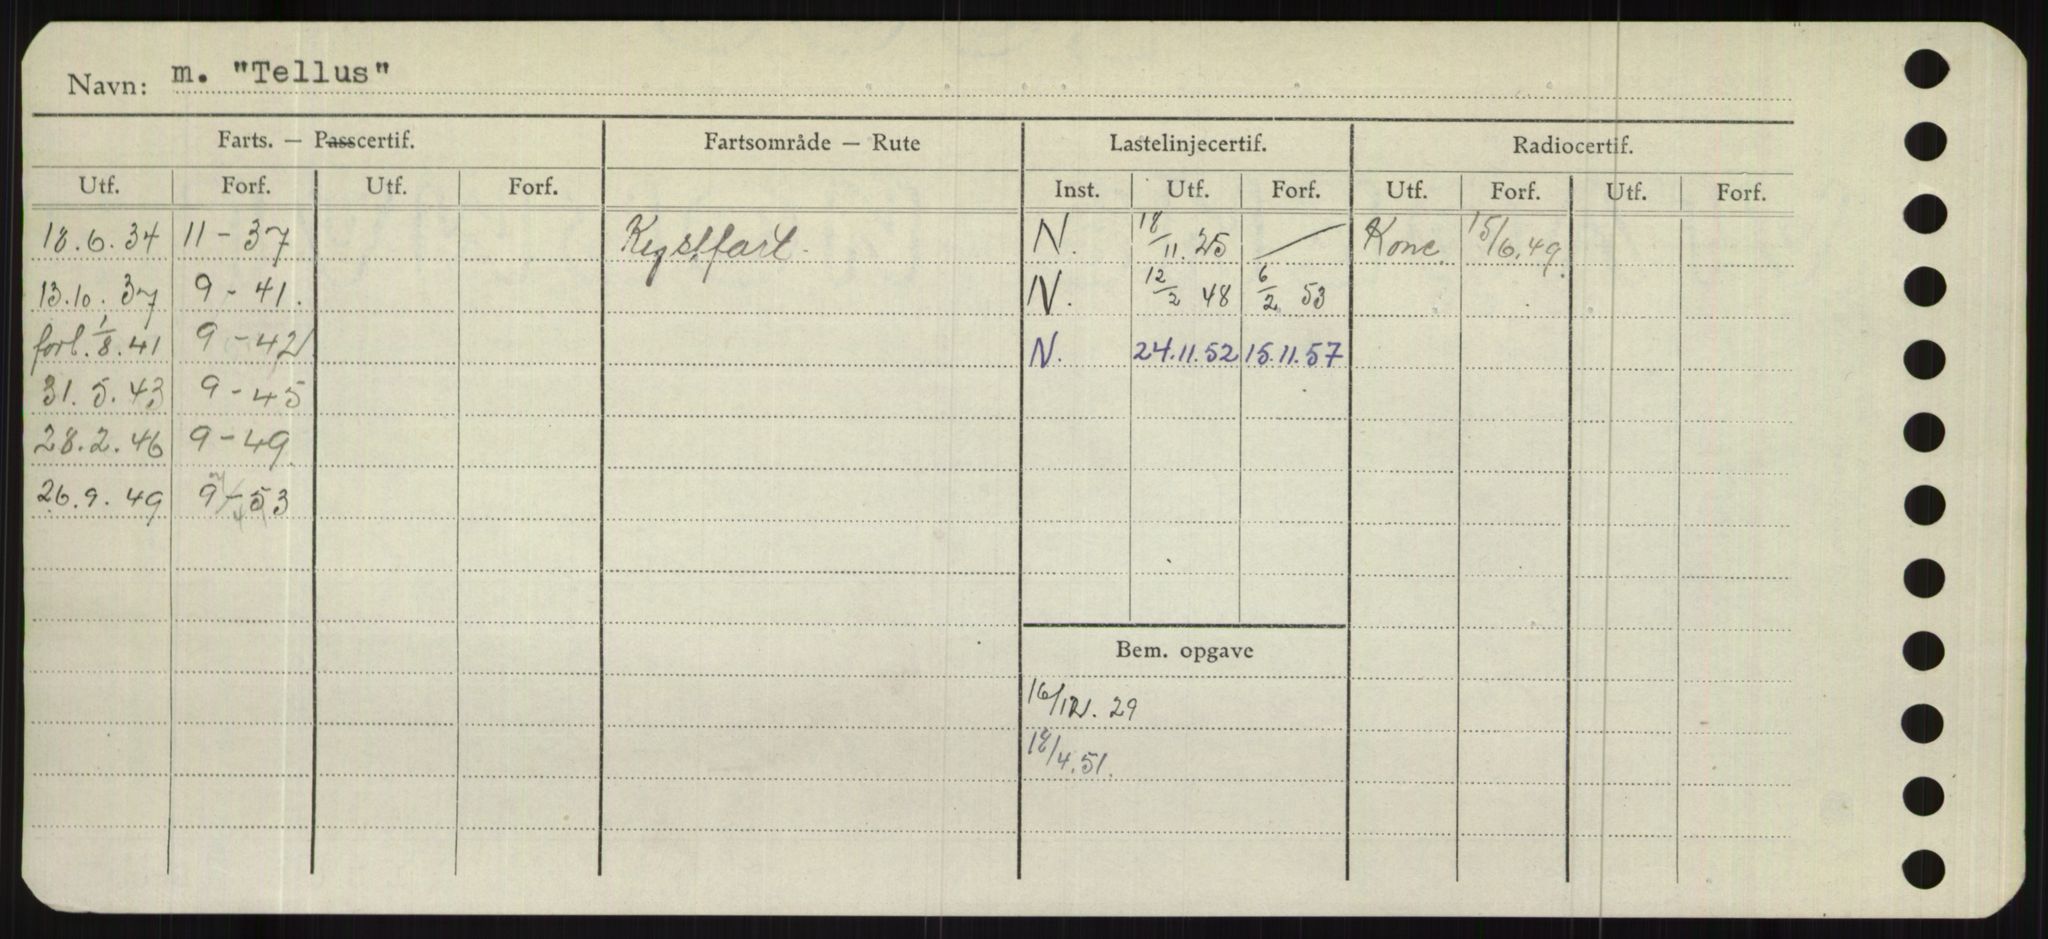 Navn: m. "Tellus"
Farts. — Passcertif. Fartsområde — Rute Lastelinjecertif. Radiocertif.
Utf. Forf. Utf. Forf. Inst. Utf. Forf. Utf. Forf. Utf. Forf.
18.6.34 11-37 Kystfart. N. 18/11.25 — Konc. 15/6.49
13.10.37 9-41. N. 12/2 48 6/2 53
forl. 1/8.41 9-42 N. 24.11.52 15.11.57
31.5.43 9-45
28.2.46 9-49
26.9.49 9-53
Bem. opgave
16/12.29
18/4.51.